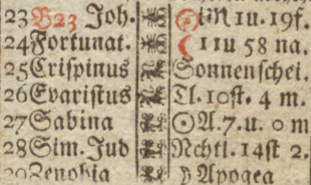 23 B23 Joh. ☉ i. ♏ 1 u. 19f.
24 Fortunat. ☾ 11u 58 na.
25 Crispinus Sonnenschei.
26 Evaristus Tl. 10st. 4 m.
27 Sabina ☉A.7.u. 0 m
28 Sim. Jud Nchtl. 14st 2.
29 Zenobia ☽ Apogea